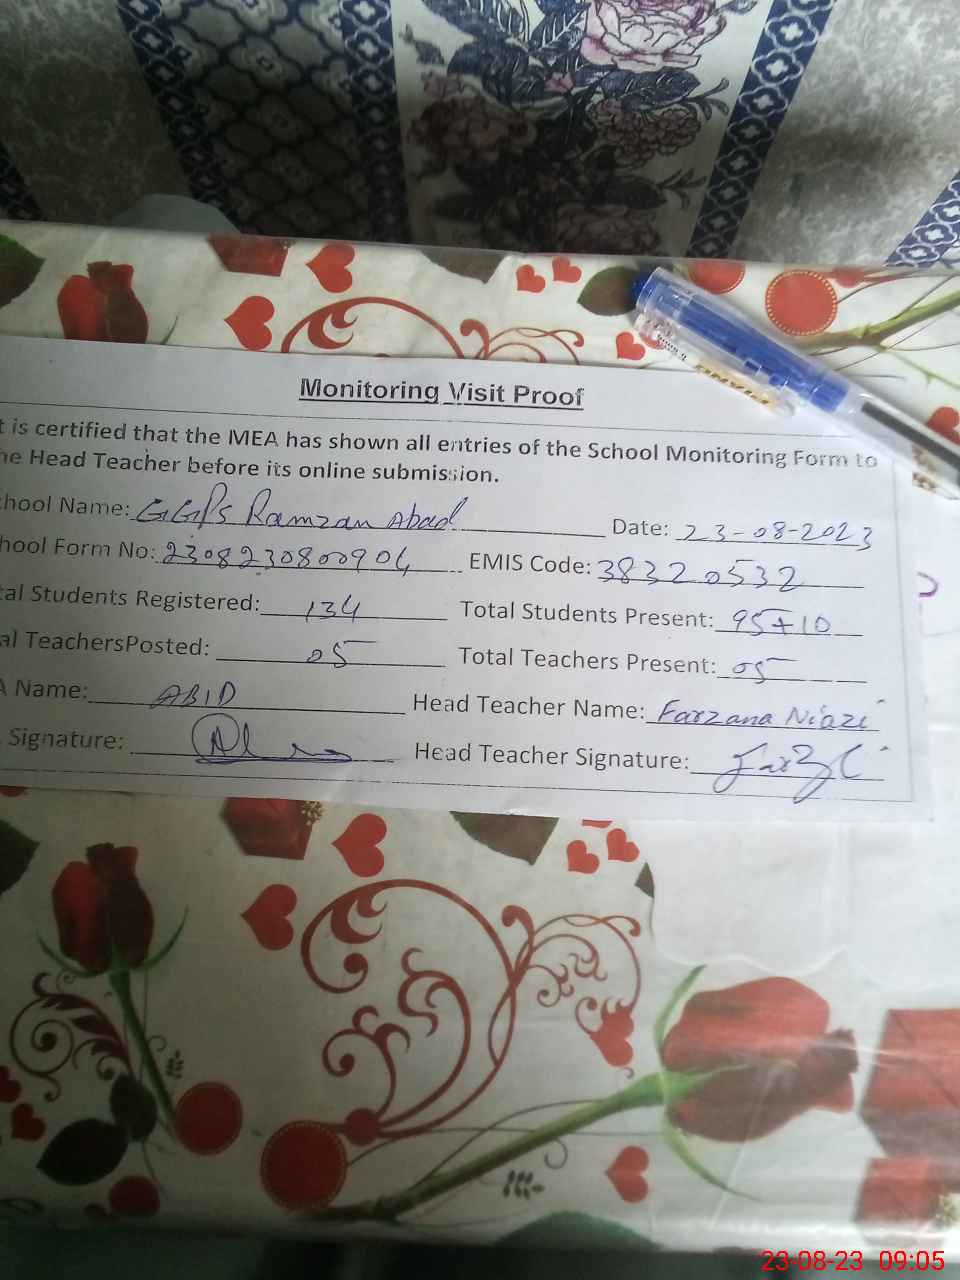 Monitoring Visit Proof
t is certified that the MEA has shown all entries of the School Monitoring Form to
he Head Teacher before its online submission.
chool Name: GGPS Ramzan Abad Date: 23-08-2023
hool Form No: 2308230800904 EMIS Code: 38320532
tal Students Registered: 134 Total Students Present: 95+10
al TeachersPosted: 05 Total Teachers Present: 05
A Name: ABID Head Teacher Name: Farzana Niazi
. Signature: Head Teacher Signature:
PIANO
23-08-23 09:05